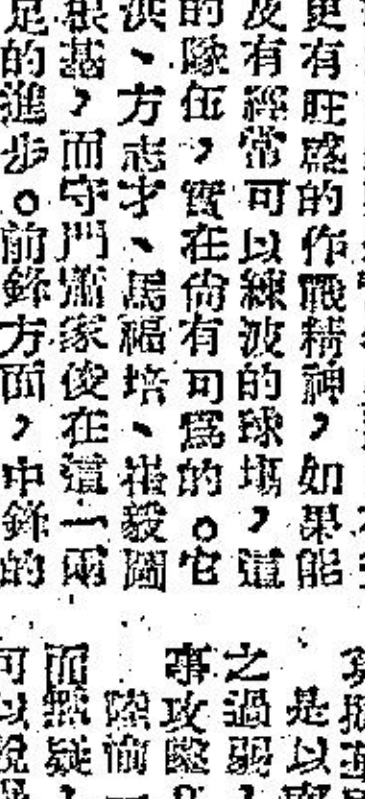 更有旺盛的作戰精神，如果能
及有經常可以練波的球場，這
的隊伍，實在尚有可爲的。它
洪、方志才、馬福培、崔毅圖
根基，而守門蕭家俊在這一兩
足的進步。前鋒方面，中鋒的
是以
之過弱，
事攻
陸前一
而無疑，
可以說